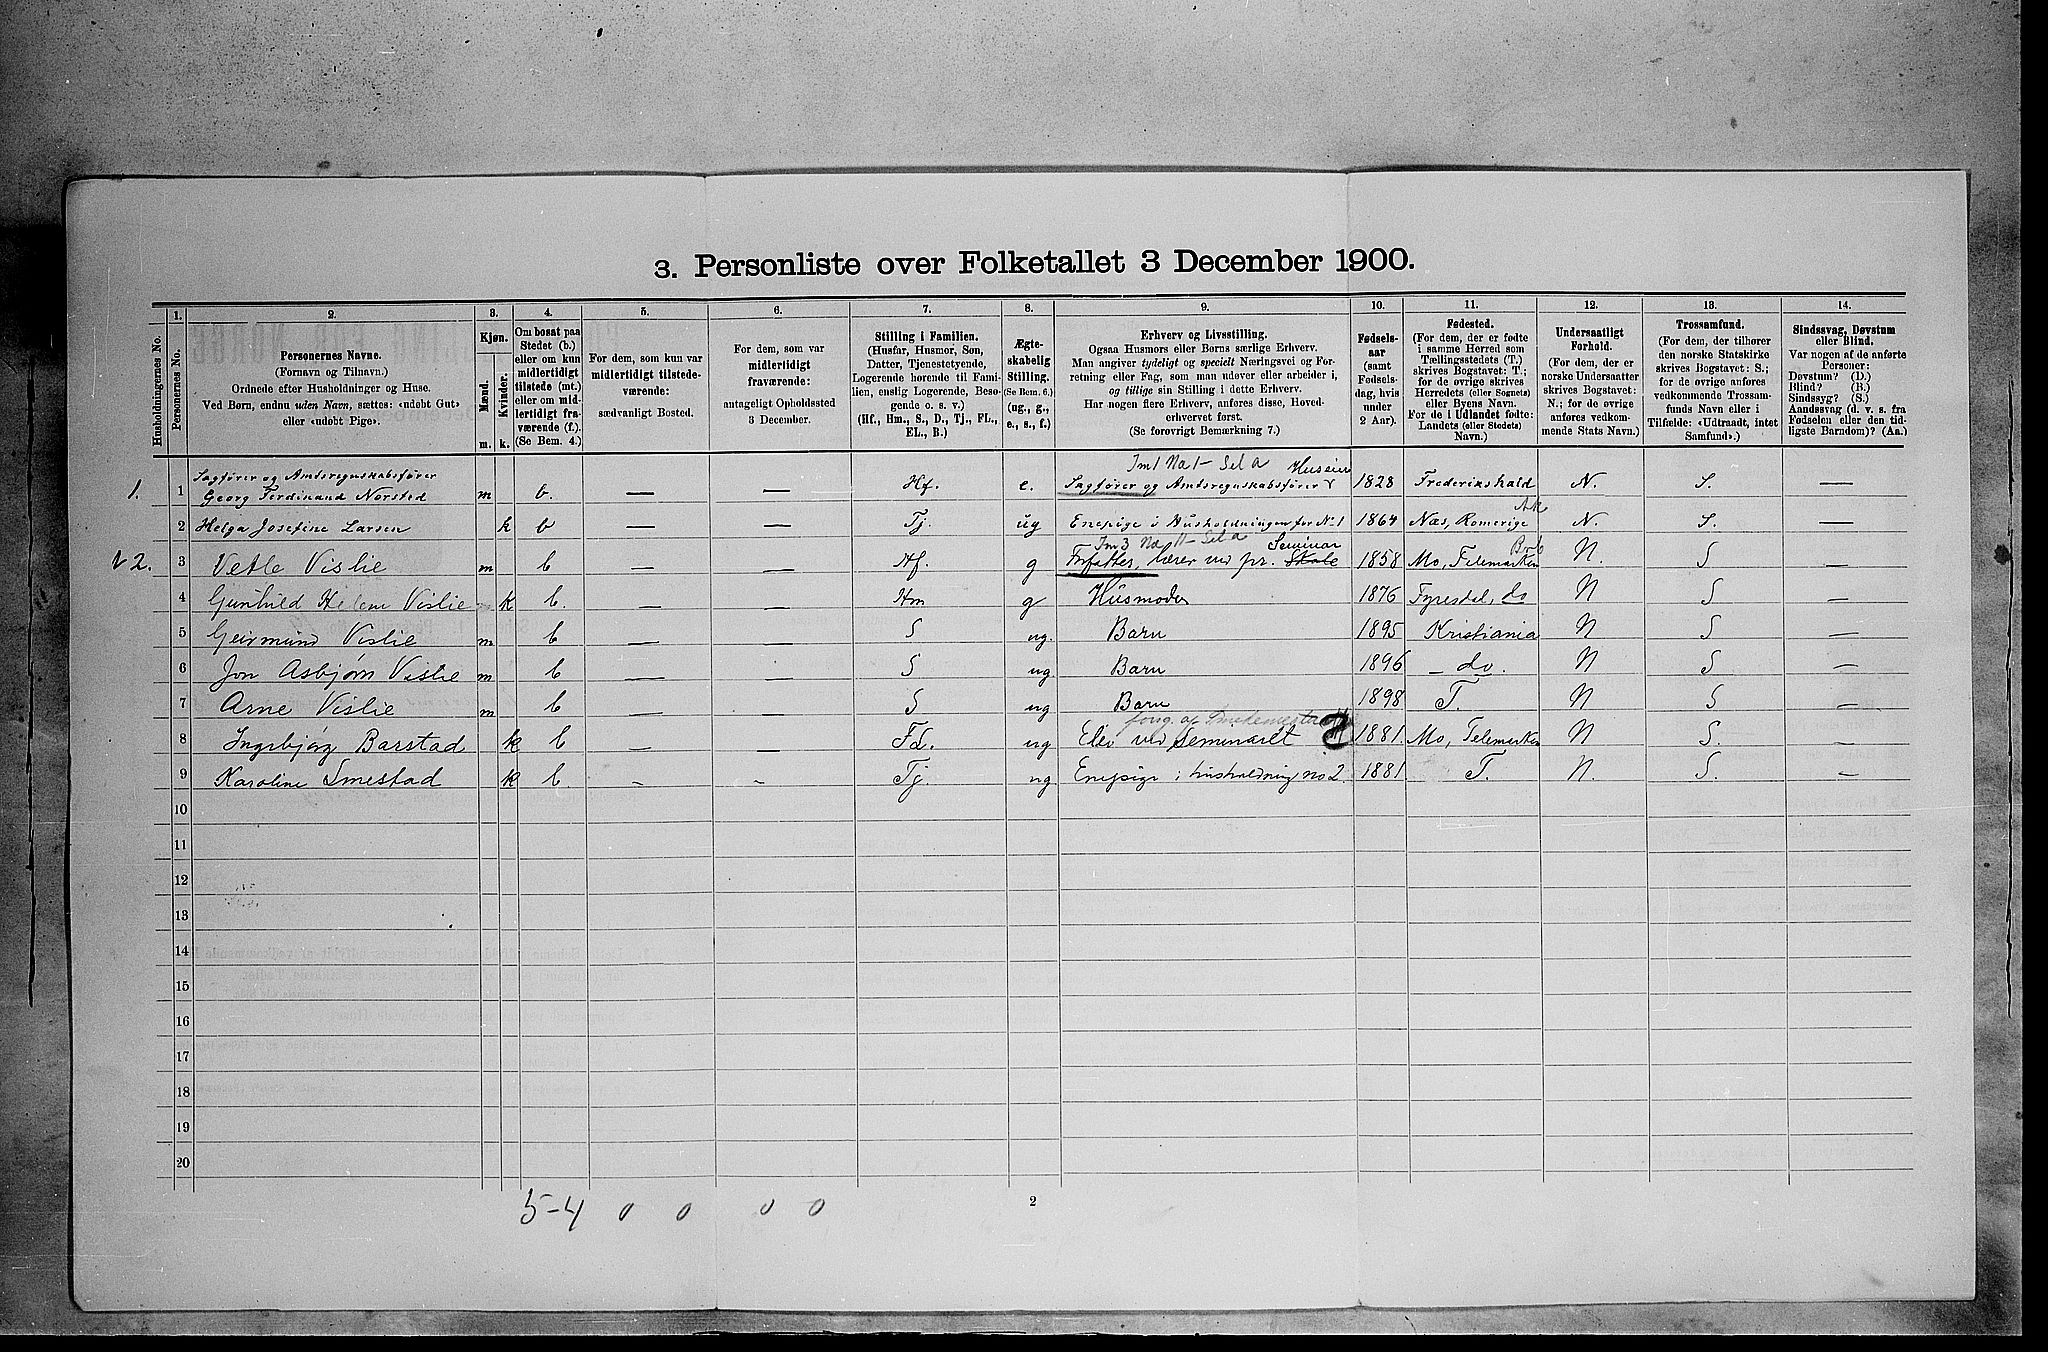 3. Personliste over Folketallet 3 December 1900.
1. 2. 3. 4. 5. 6. 7. 8. 9. 10. 11. 12. 13. 14.
Husholdningernes No.
Personernes No.
Personernes Navne.
(Fornavn og Tilnavn.)
Ordnede efter Husholdninger og Huse.
Ved Børn, endnu uden Navn, sættes: «udøbt Gut»
eller «udøbt Pige».
Kjøn.
Mænd.
Kvinder.
m. k.
Om bosat paa
Stedet (b.)
eller om kun
midlertidigt
tilstede (mt.)
eller om mid-
lertidigt fra-
værende (f.).
(Se Bem. 4.)
For dem, som kun var
midlertidigt tilstede-
værende:
sædvanligt Bosted.
For dem, som var
midlertidigt
fraværende:
antageligt Opholdssted
3 December.
Stilling i Familien.
(Husfar, Husmor, Søn,
Datter, Tjenestetyende,
Logerende hørende til Fami-
lien, enslig Logerende, Besø-
gende o. s. v.)
(Hf., Hm., S., D., Tj., FL.,
EL., B.)
Ægte-
skabelig
Stilling.
(Se Bem. 6.)
(ug., g.,
e., s., f.)
Erhverv og Livsstilling.
Ogsaa Husmors eller Børns særlige Erhverv.
Man angiver tydeligt og specielt Næringsvei og For-
retning eller Fag, som man udøver eller arbeider i,
og tillige sin Stilling i dette Erhverv.
Har nogen flere Erhverv, anføres disse, Hoved-
erhvervet først.
(Se forøvrigt Bemærkning 7.)
Fødsels-
aar
(samt
Fødsels-
dag, hvis
under
2 Aar).
Fødested.
(For dem, der er fødte
i samme Herred som
Tællingsstedets (T.)
skrives Bogstavet: T.;
for de øvrige skrives
Herredets (eller Sognets)
eller Byens Navn.
For de i Udlandet fødte:
Landets (eller Stedets)
Navn.)
Undersaatligt
Forhold.
(For dem, der er
norske Undersaatter
skrives Bogstavet:
N.; for de øvrige
anføres vedkom-
mende Stats Navn.)
Trossamfund.
(For dem, der tilhører
den norske Statskirke
skrives Bogstavet: S.;
for de øvrige anføres
vedkommende Trossam-
funds Navn eller i
Tilfælde: «Udtraadt, intet
Samfund».)
Sindssvag, Døvstum
eller Blind.
Var nogen af de anførte
Personer:
Døvstum? (D.)
Blind? (B.)
Sindssyg? (S.)
Aandssvag (d. v. s. fra
Fødselen eller den tid-
ligste Barndom)? (Aa.)
Sagfører og Amtsregnskabsfører
1. 1 Georg Ferdinand Norsted m b. — — Hf. e. Sagfører og Amtsregnskabsfører 1828 Frederikshald N. S. —
2 Helga Josefine Larsen k b — — Tj. ug Enepige i Husholdningen for No 1 1864 Næs, Romerige N. S. —
Seminar
2. 3 Vetle Vislie m b — — Hf. g Forfatter, lærer ved pr. Skole 1858 Mo, Telemarken N. S —
4 Gunhild Helene Vislie k b. — — Hm g Husmoder 1876 Fyresdal, do N S —
5 Geirmund Vislie m b — — S ug. Barn 1895 Kristiania N S —
6 Jon Asbjørn Vislie m b — — S ug Barn 1896 — do. N S —
7 Arne Vislie m b — — S ug Barn 1898 T. N S —
8 Ingebjørg Barstad k b — — FL. ug Elev ved Seminaret 1881. Mo, Telemarken N S. —
9 Karoline Smestad k b. — — Tj. ug Enepige i husholdning no 2 1881 T. N. S. —
10
11
12
13
14
15
16
17
18
19
20
5-4 0 0 0 0
2